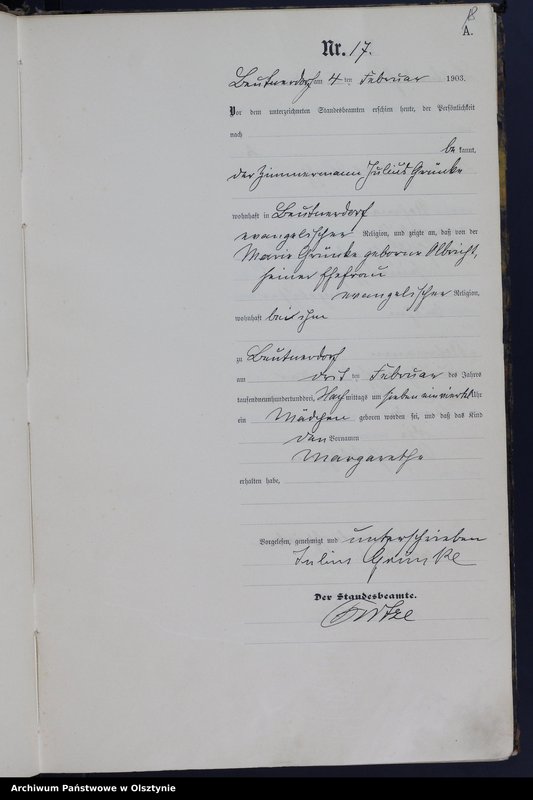 18
A.
Nr. 17.
Beutnerdorf am 4 ten Februar 1903.
Vor dem unterzeichneten Standesbeamten erschien heute, der Persönlichkeit
nach
be kannt,
der Zimmermann Julius Grünke
wohnhaft in Beutnerdorf
evangelischer Religion, und zeigte an, daß von der
Marie Grünke geborne Olbricht,
seiner Ehefrau
evangelischer Religion,
wohnhaft bei ihm
zu Beutnerdorf
am drit ten Februar des Jahres
tausendneunhundertunddrei, Nachmittags um sieben einviertel Uhr
ein Mädchen geboren worden sei, und daß das Kind
den Vornamen
Margarethe
erhalten habe,
Vorgelesen, genehmigt und unterschrieben
Julius Grünke
Der Standesbeamte.
Archiwum Państwowe w Olsztynie